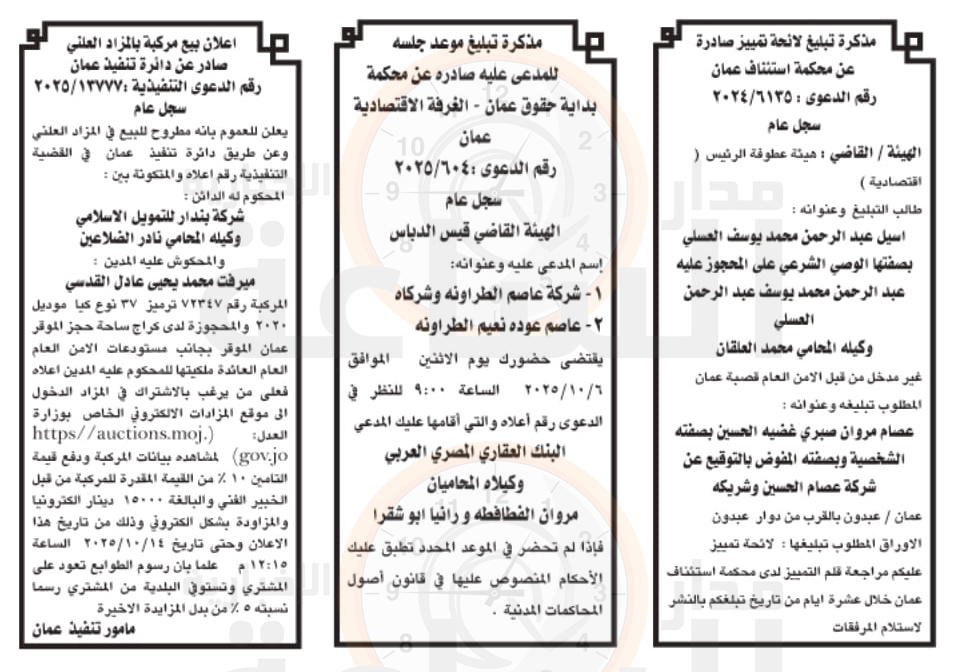 مذكرة تبليغ لائحة تمييز صادرة
عن محكمة استئناف عمان
رقم الدعوى : ٢٠٢٤/٦١٣٥
سجل عام
الهيئة / القاضي : هيئة عطوفة الرئيس (
اقتصادية )
طالب التبليغ وعنوانه :
اسيل عبد الرحمن محمد يوسف العسلي
بصفتها الوصي الشرعي على المحجوز عليه
عبد الرحمن محمد يوسف عبد الرحمن
العسلي
وكيله المحامي محمد العلقان
غير مدخل من قبل الامن العام قصبة عمان
المطلوب تبليغه وعنوانه :
عصام مروان صبري غضيه الحسين بصفته
الشخصية وبصفته المفوض بالتوقيع عن
شركة عصام الحسين وشريكه
عمان / عبدون بالقرب من دوار عبدون
الاوراق المطلوب تبليغها : لائحة تمييز
عليكم مراجعة قلم التمييز لدى محكمة استئناف
عمان خلال عشرة ايام من تاريخ تبلغكم بالنشر
لاستلام المرفقات
مذكرة تبليغ موعد جلسه
للمدعى عليه صادره عن محكمة
بداية حقوق عمان - الغرفة الاقتصادية
عمان
رقم الدعوى :٢٠٢٥/٦٠٤
سجل عام
الهيئة القاضي قيس الدباس
إسم المدعى عليه وعنوانه:
١- شركة عاصم الطراونه وشركاه
٢- عاصم عوده نعيم الطراونه
يقتضى حضورك يوم الاثنين الموافق
٢٠٢٥/١٠/٦ الساعة ٩:٠٠ للنظر في
الدعوى رقم أعلاه والتي أقامها عليك المدعي
البنك العقاري المصري العربي
وكيلاه المحاميان
مروان الفطافطه و رانيا ابو شقرا
فإذا لم تحضر في الموعد المحدد تطبق عليك
الأحكام المنصوص عليها في قانون أصول
المحاكمات المدنية .
اعلان بيع مركبة بالمزاد العلني
صادر عن دائرة تنفيذ عمان
رقم الدعوى التنفيذية :٢٠٢٥/١٣٧٧٧
سجل عام
يعلن للعموم بانه مطروح للبيع في المزاد العلني
وعن طريق دائرة تنفيذ عمان في القضية
التنفيذية رقم اعلاه والمتكونة بين :
المحكوم له الدائن :
شركة بندار للتمويل الاسلامي
وكيله المحامي نادر الضلاعين
والمحكوش عليه المدين :
ميرفت محمد يحيى عادل القدسي
المركبة رقم ٧٢٣٤٧ ترميز ٣٧ نوع كيا موديل
٢٠٢٠ والمحجوزة لدى كراج ساحة حجز الموقر
عمان الموقر بجانب مستودعات الامن العام
العام العائدة ملكيتها للمحكوم عليه المدين اعلاه
فعلى من يرغب بالاشتراك في المزاد الدخول
الى موقع المزادات الالكتروني الخاص بوزارة
العدل: (https//auctions.moj.
gov.jo) لمشاهده بيانات المركبة ودفع قيمة
التامين ١٠ ٪ من القيمة المقدرة للمركبة من قبل
الخبير الفني والبالغة ١٥٠٠٠ دينار الكترونيا
والمزاودة بشكل الكتروني وذلك من تاريخ هذا
الاعلان وحتى تاريخ ٢٠٢٥/١٠/١٤ الساعة
١٢:١٥ م علما بان رسوم الطوابع تعود على
المشتري وتستوفي البلدية من المشتري رسما
نسبته ٥ ٪ من بدل المزايدة الاخيرة
مامور تنفيذ عمان
مدار
الساعة
الاخبارية